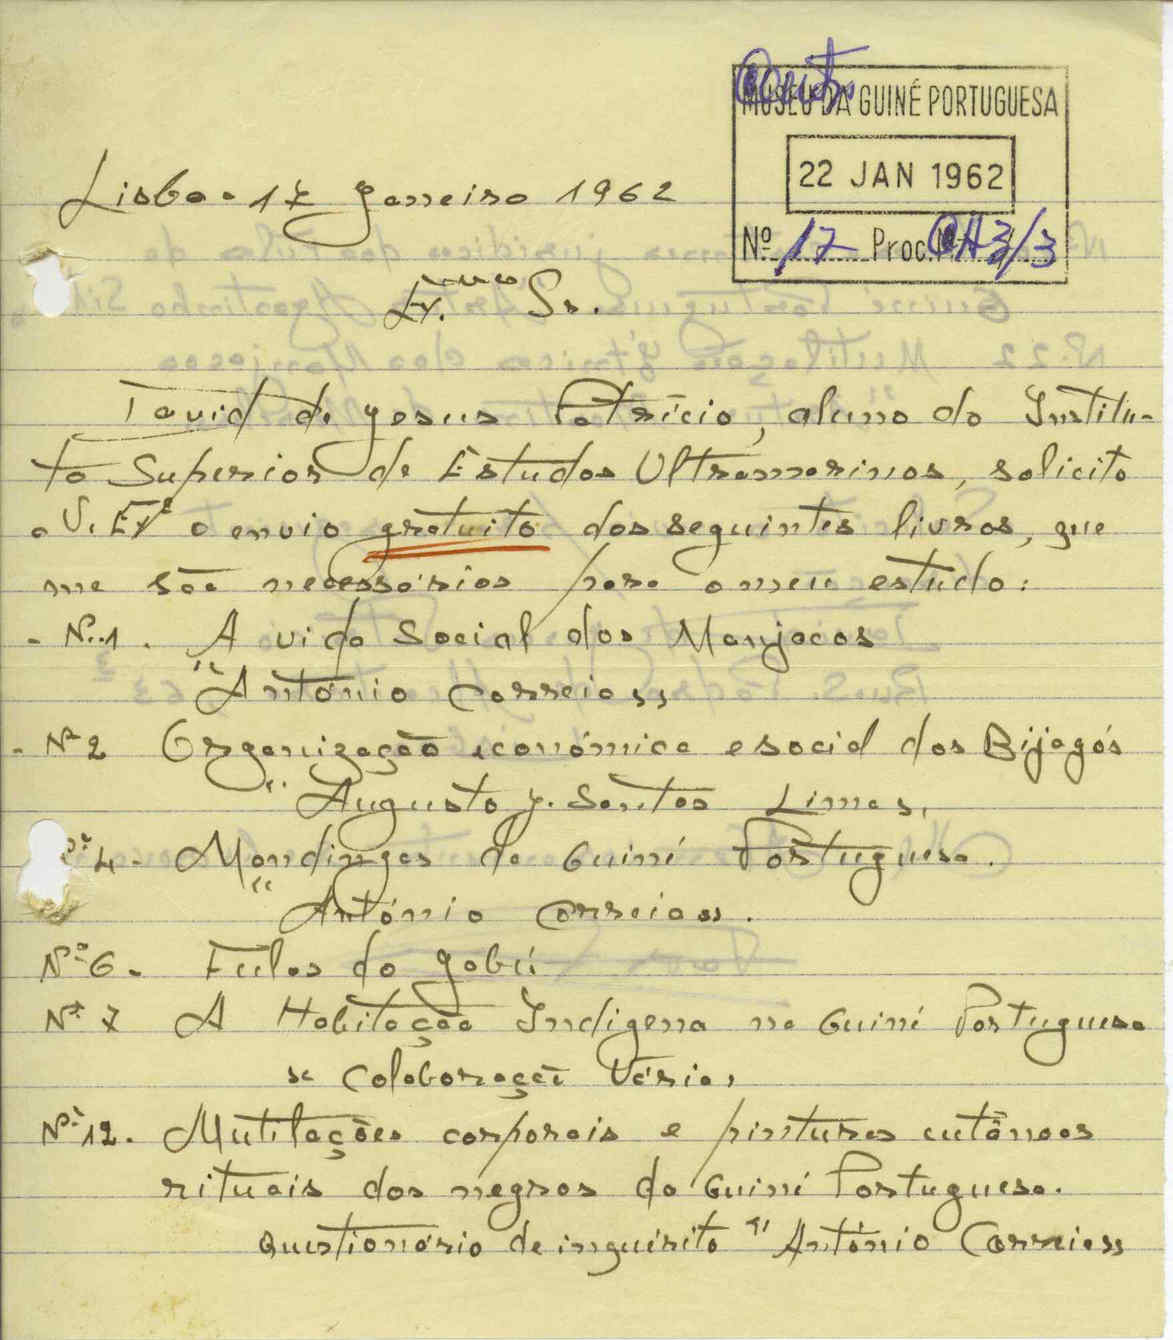 MUSEU DA GUINÉ PORTUGUESA
22 JAN 1962
Nº 17 Proc. Nº 3/3
Lisboa 17 Janeiro 1962
Ex.mo Sr.
David de Jesus Patrício, aluno do Institu-
to Superior de Estudos Ultramarinos, solicito
a V. Exª o envio gratuito dos seguintes livros, que
me são necessários para o meu estudo:
- Nº 1. A vida Social dos Manjacos
"António Carreira"
- Nº 2 Organização económica e social dos Bijagós
" Augusto J. Santos Lima"
Nº 4 - Mandingas da Guiné Portuguesa.
" António Carreira".
Nº 6 - Fulas do Gabú
Nº 7 A Habitação Indígena na Guiné Portuguesa
" Colaboração Vária"
Nº 12. Mutilações corporais e pinturas cutâneas
rituais dos negros da Guiné Portuguesa.
Questionário de inquérito " António Carreira"